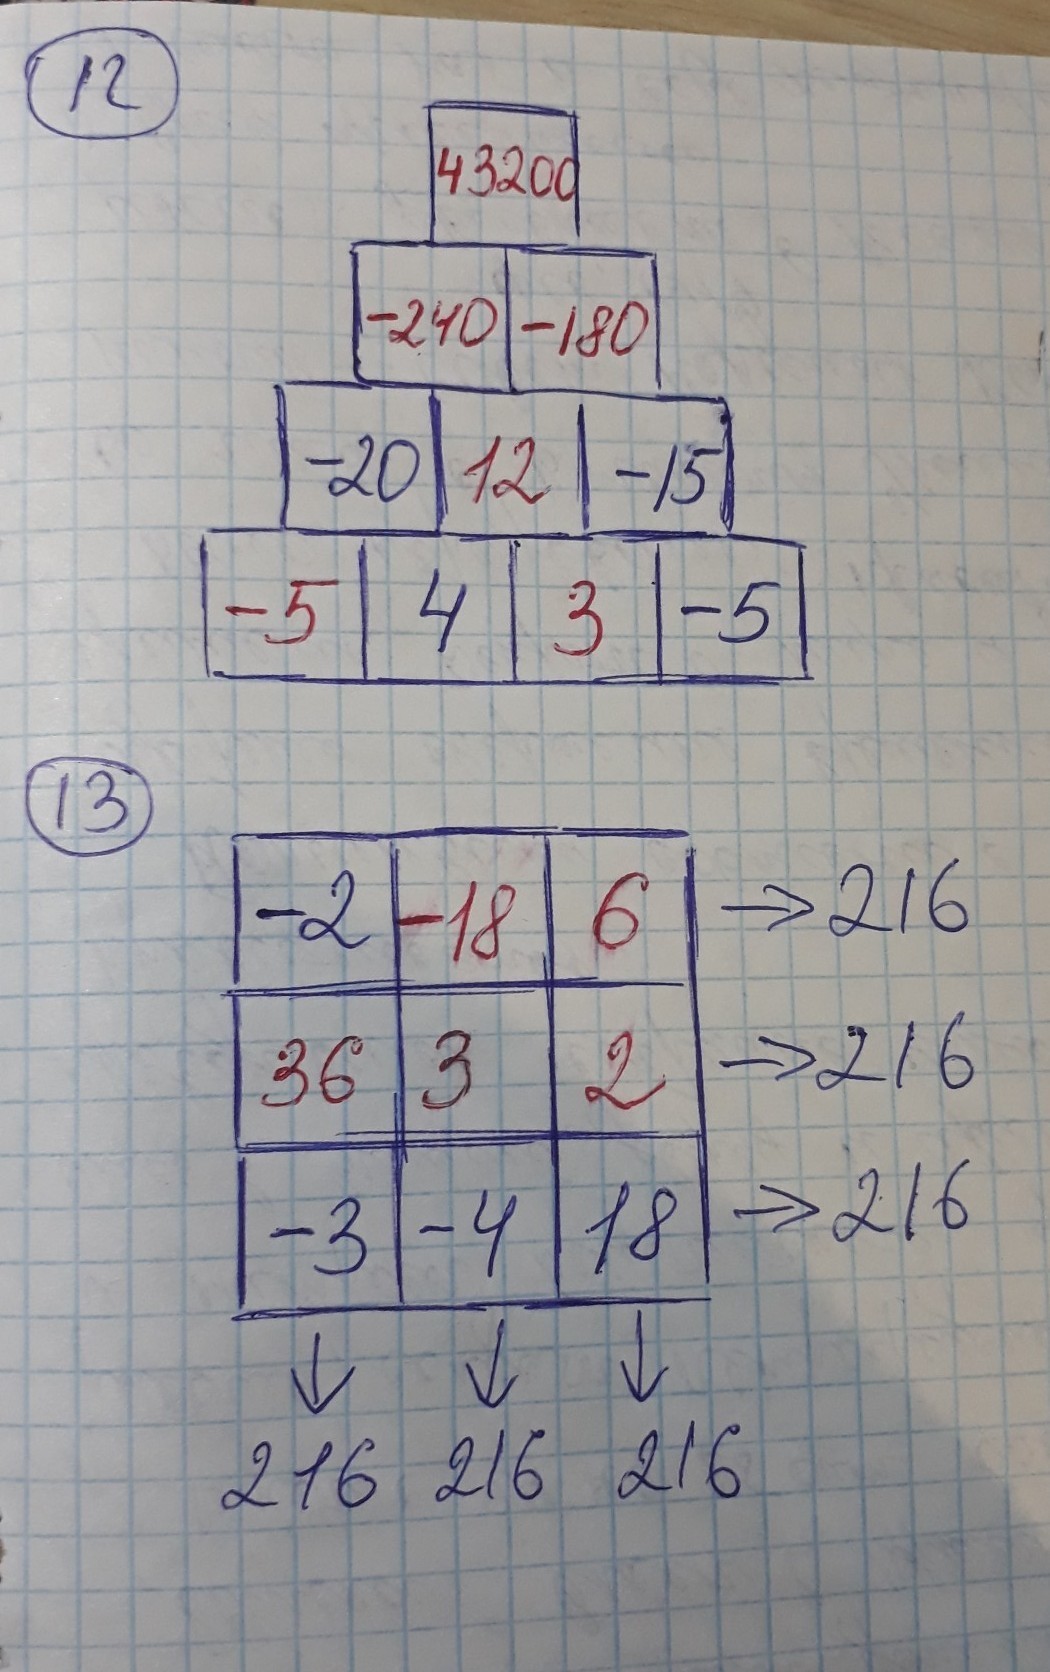 12
43200
-240 -180
-20 12 -15
-5 4 3 -5
13
-2 -18 6 → 216
36 3 2 → 216
-3 -4 18 → 216
↓ ↓ ↓
216 216 216